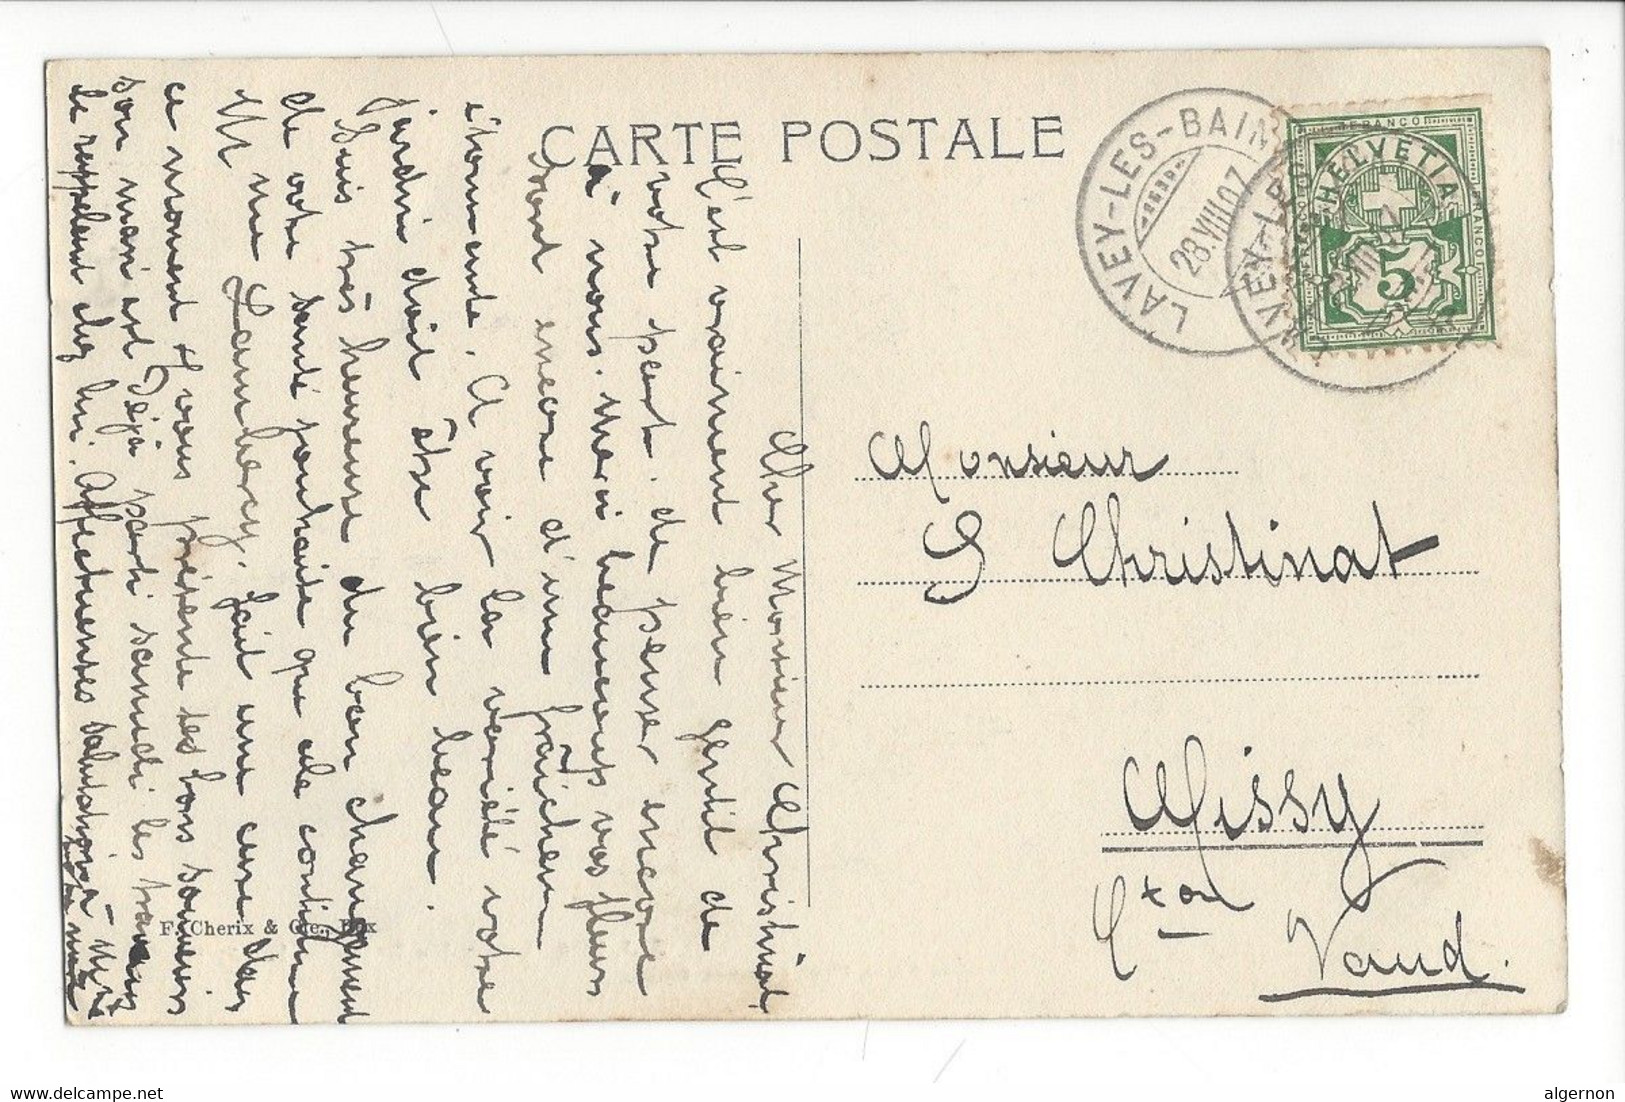 CARTE POSTALE
LAVEY-LES-BAINS
28.VIII.07
FRANCO
HELVETIA
5
Monsieur
S Christinat
Missy
Cton
Vaud.
Cher Monsieur Christinat
C'est vraiment bien gentil de
votre part. de penser encore
à nous. Merci beaucoup vos fleurs
sont encore d'une fraîcheur
étonnante. A voir la variété votre
jardin doit être bien beau.
Suis très heureuse du bon changement
de votre santé souhaite que cela continue
Mme Lambercy, fait une cure dès
ce moment & vous présente ses bons souvenirs
son mari est déjà parti samedi les travaux
le rappelant chez lui. Affectueuses salutations
F. Cherix & Cie., Bex
delcampe.net
algernon